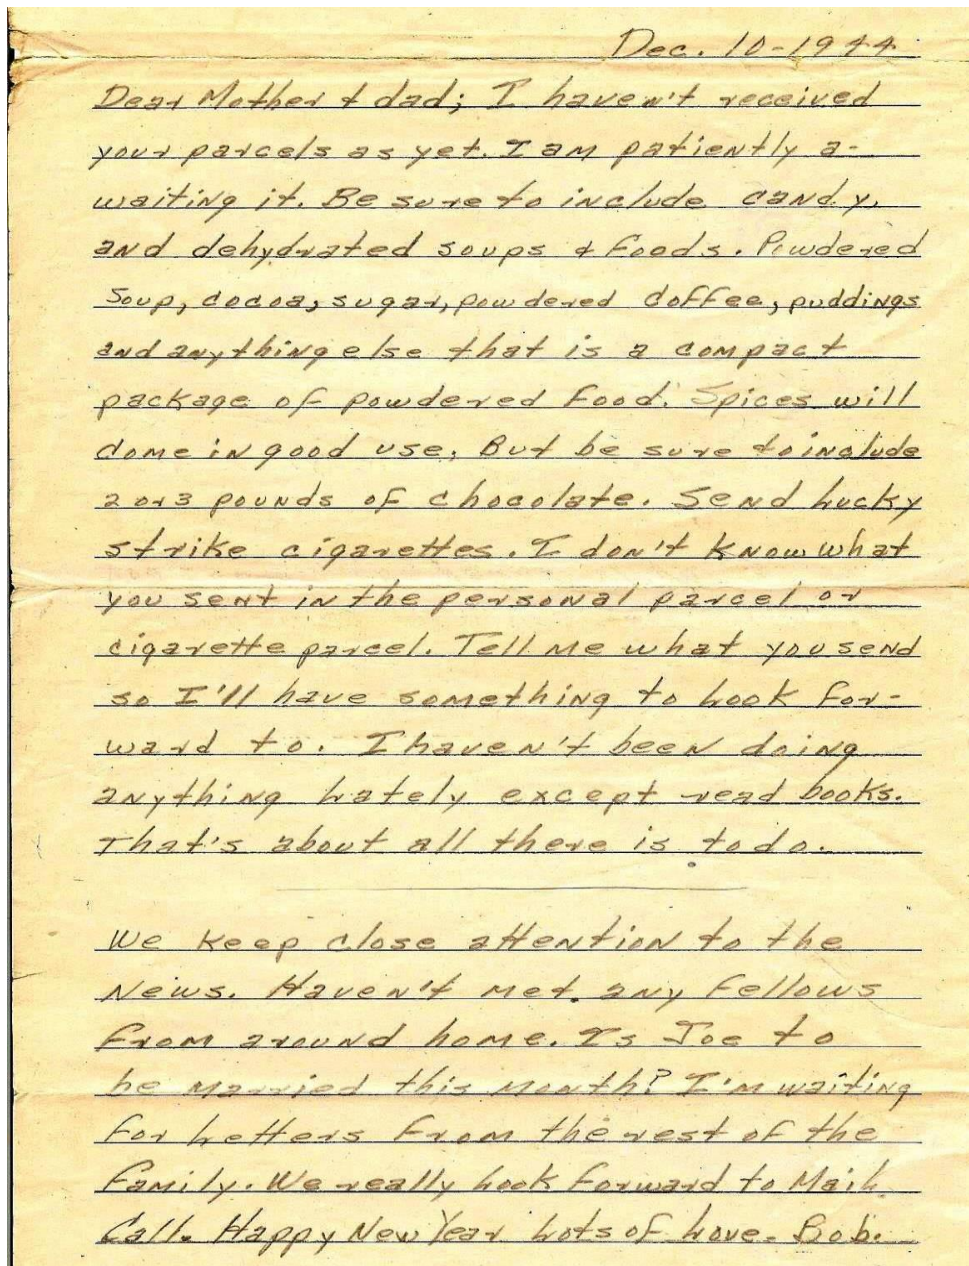 Dec. 10-1944
Dear Mother & dad; I haven't received
your parcels as yet. I am patiently a-
waiting it. Be sure to include candy,
and dehydrated soups & foods. Powdered
Soup, cocoa, sugar, powdered coffee, puddings
and anything else that is a compact
package of powdered food. Spices will
come in good use, But be sure to include
2 or 3 pounds of chocolate. Send Lucky
strike cigarettes. I don't know what
you sent in the personal parcel or
cigarette parcel. Tell me what you send
so I'll have something to look for-
ward to. I haven't been doing
anything lately except read books.
That's about all there is to do.
We keep close attention to the
News. Haven't met any fellows
from around home. Is Joe to
be married this month? I'm waiting
for letters from the rest of the
family. We really look forward to Mail
Call. Happy New Year Lots of love. Bob.